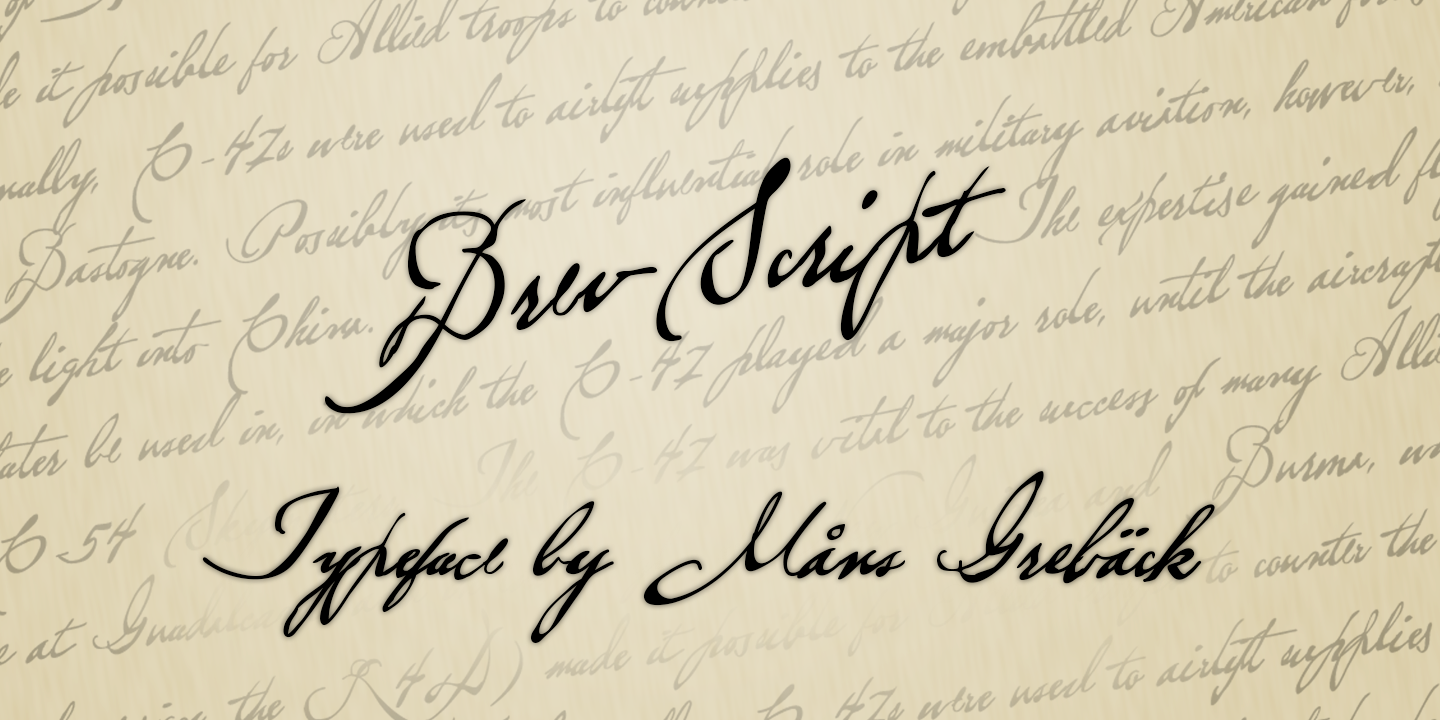 it possible for Allied troops to
C-47s were used to airlift supplies to the embattled American
Bastogne. Possibly its most influential role in military aviation, however,
Brev Script
light into China. The expertise gained
later be used in, in which the C-47 played a major role, until the aircraft
C-54 The C-47 was vital to the success of many
Typeface by Måns Grebäck
at and Burma,
the R4D) made it possible for to counter the
were used to airlift supplies